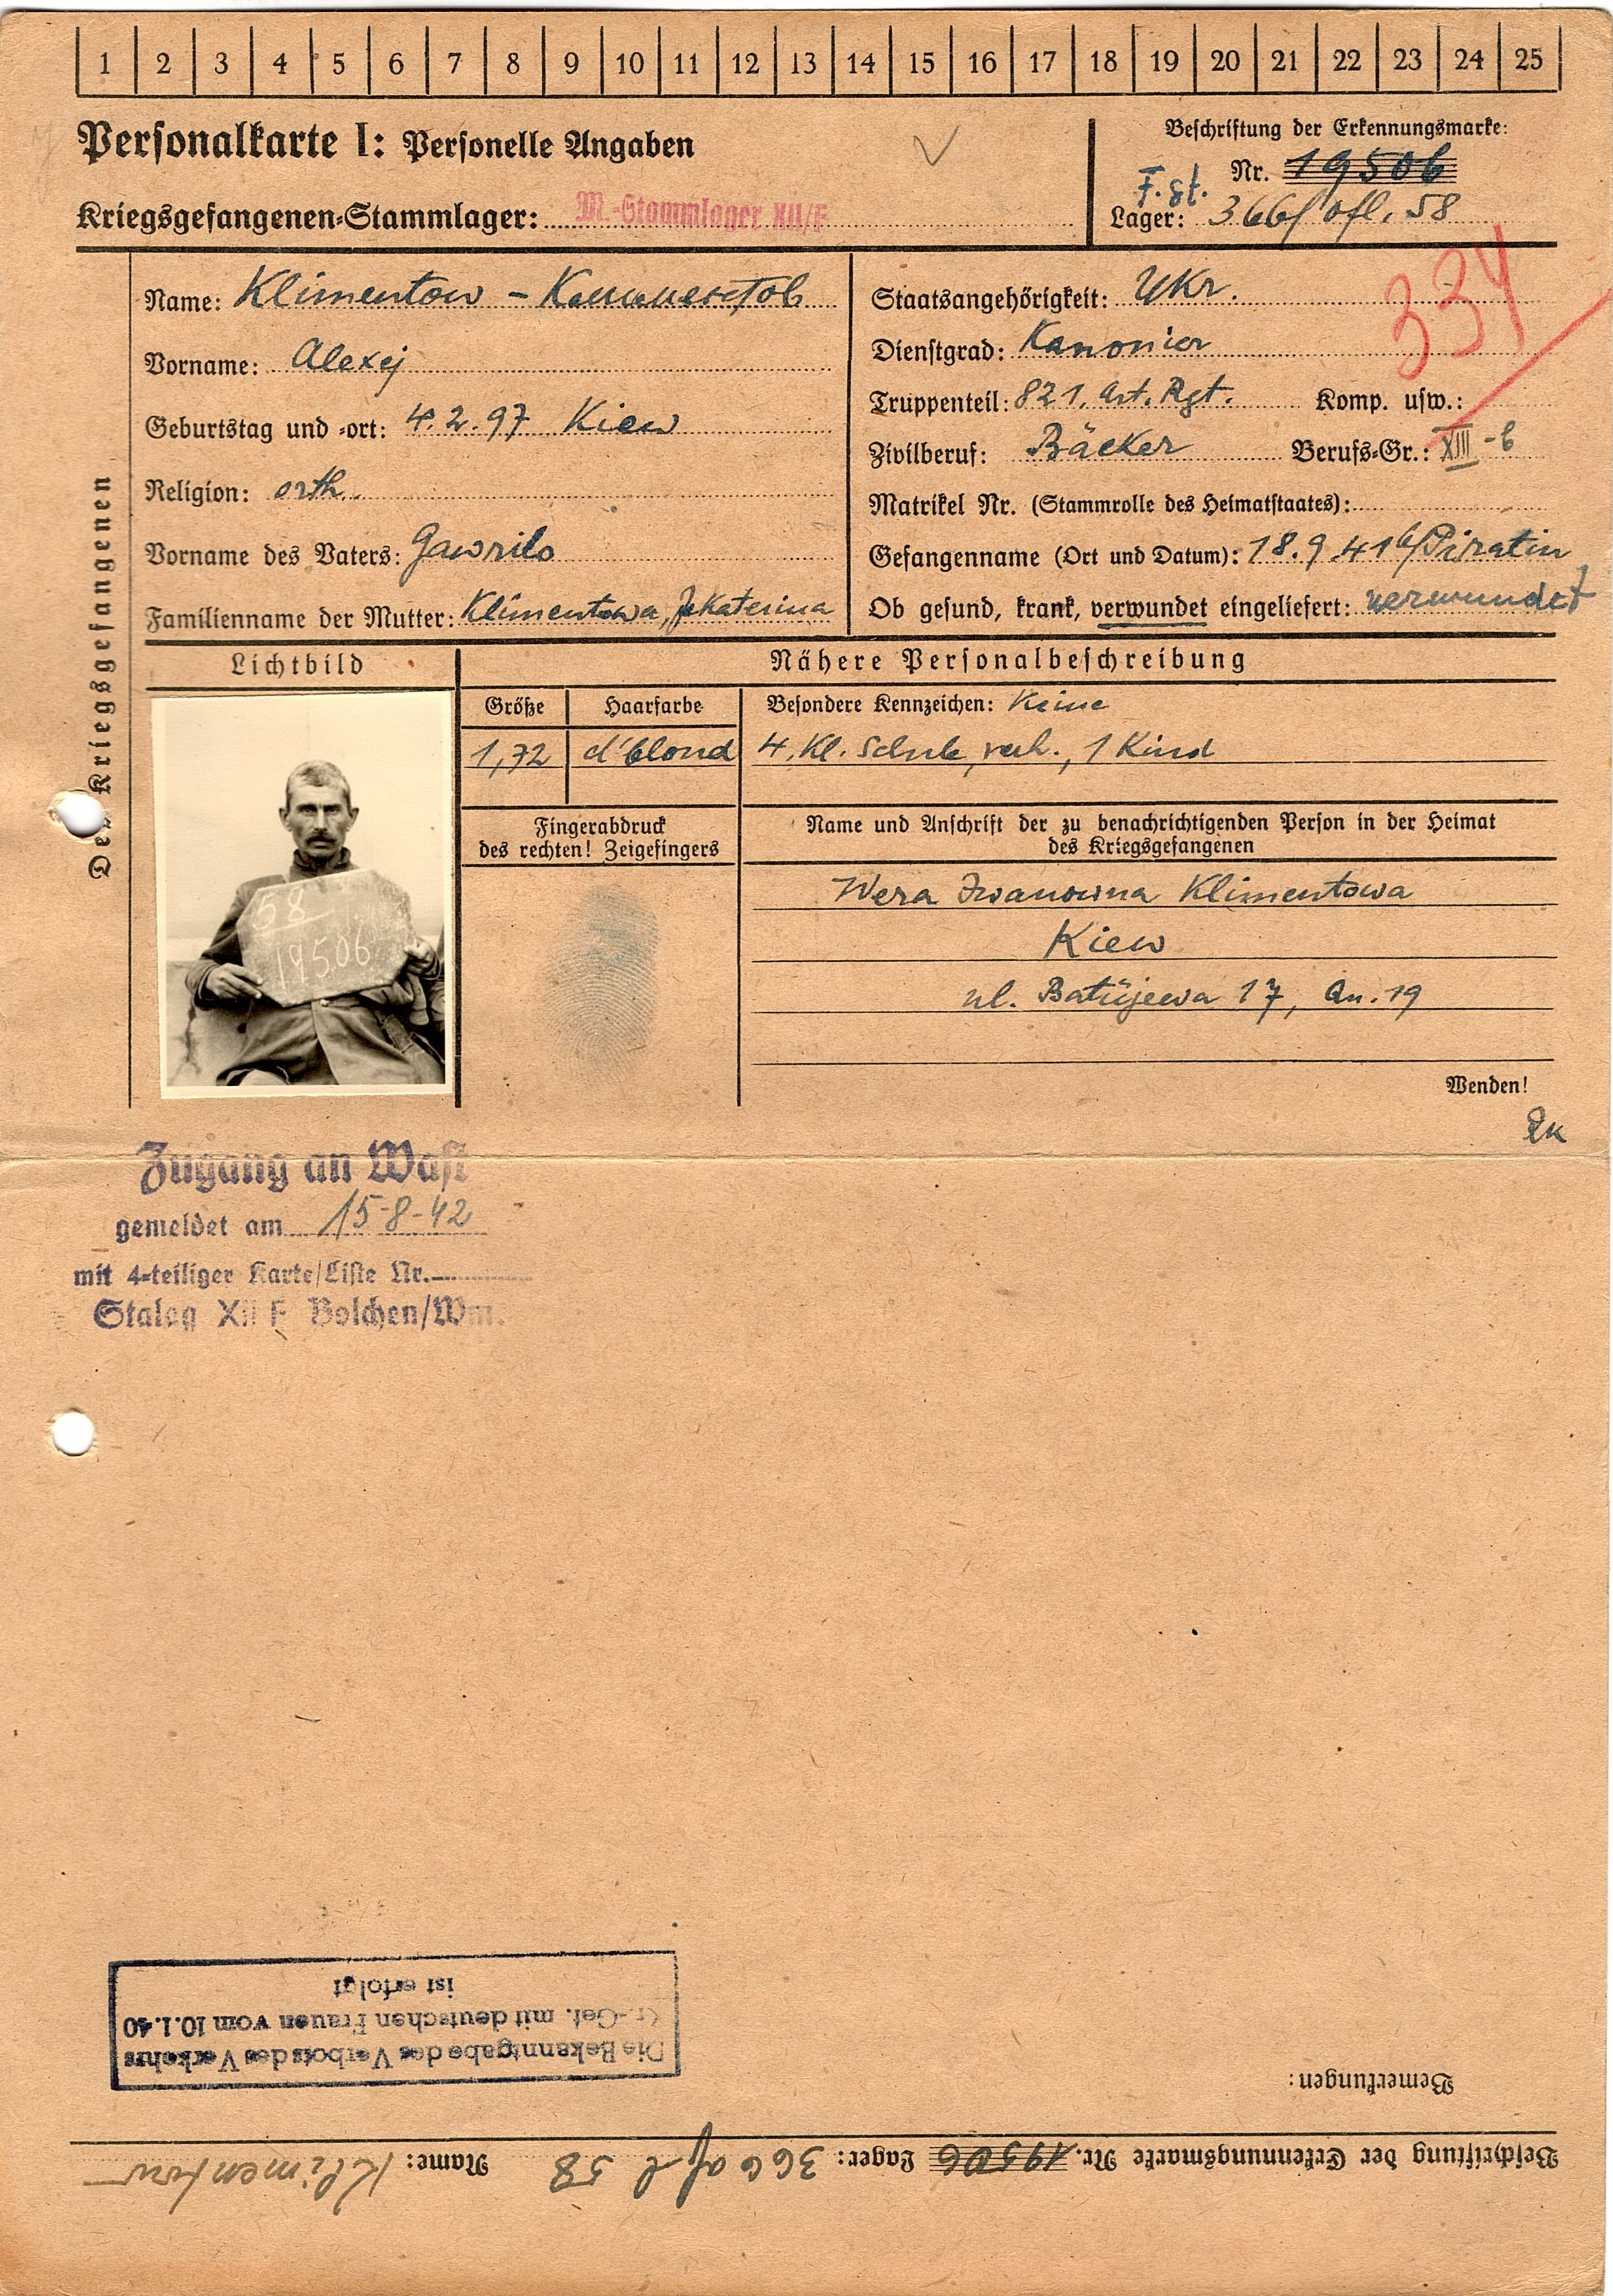 1 2 3 4 5 6 7 8 9 10 11 12 13 14 15 16 17 18 19 20 21 22 23 24 25
Personalkarte I: Personelle Angaben
Kriegsgefangenen-Stammlager: M.-Stammlager XII/F
Beschriftung der Erkennungsmarke:
Nr. 19506
F. St.
Lager: 366/ofl. 58
334
Des Kriegsgefangenen
Name: Klimentow -
Vorname: Alexej
Geburtstag und -ort: 4.2.97 Kiew
Religion: orth.
Vorname des Vaters: Gawrilo
Familienname der Mutter: Klimentowa, Jekaterina
Staatsangehörigkeit: Ukr.
Dienstgrad: Kanonier
Truppenteil: 821. Art. Rgt. Komp. usw.:
Zivilberuf: Bäcker Berufs-Gr.: XIII-b
Matrikel Nr. (Stammrolle des Heimatstaates):
Gefangenname (Ort und Datum): 18.9.41 b/Piratin
Ob gesund, krank, verwundet eingeliefert: verwundet
Lichtbild
58
19506
Nähere Personalbeschreibung
Größe Haarfarbe Besondere Kennzeichen: Keine
1,72 d'blond 4. Kl. Schule, verh., 1 Kind
Fingerabdruck
des rechten! Zeigefingers
Name und Anschrift der zu benachrichtigenden Person in der Heimat
des Kriegsgefangenen
Wera Iwanowna Klimentowa
Kiew
ul. Batüjewa 17, Qu. 19
Wenden!
Zugang an Wast
gemeldet am 15-8-42
mit 4-teiliger Karte/Liste Nr.
Stalag XII F Bolchen/Wm.
Die Bekanntgabe des Verbots des Verkehrs
Kr.-Gef. mit deutschen Frauen vom 10.1.40
ist erfolgt
Bemerkungen:
Beschriftung der Erkennungsmarke Nr. 19506 Lager: 366 ofl 58 Name: Klimentow